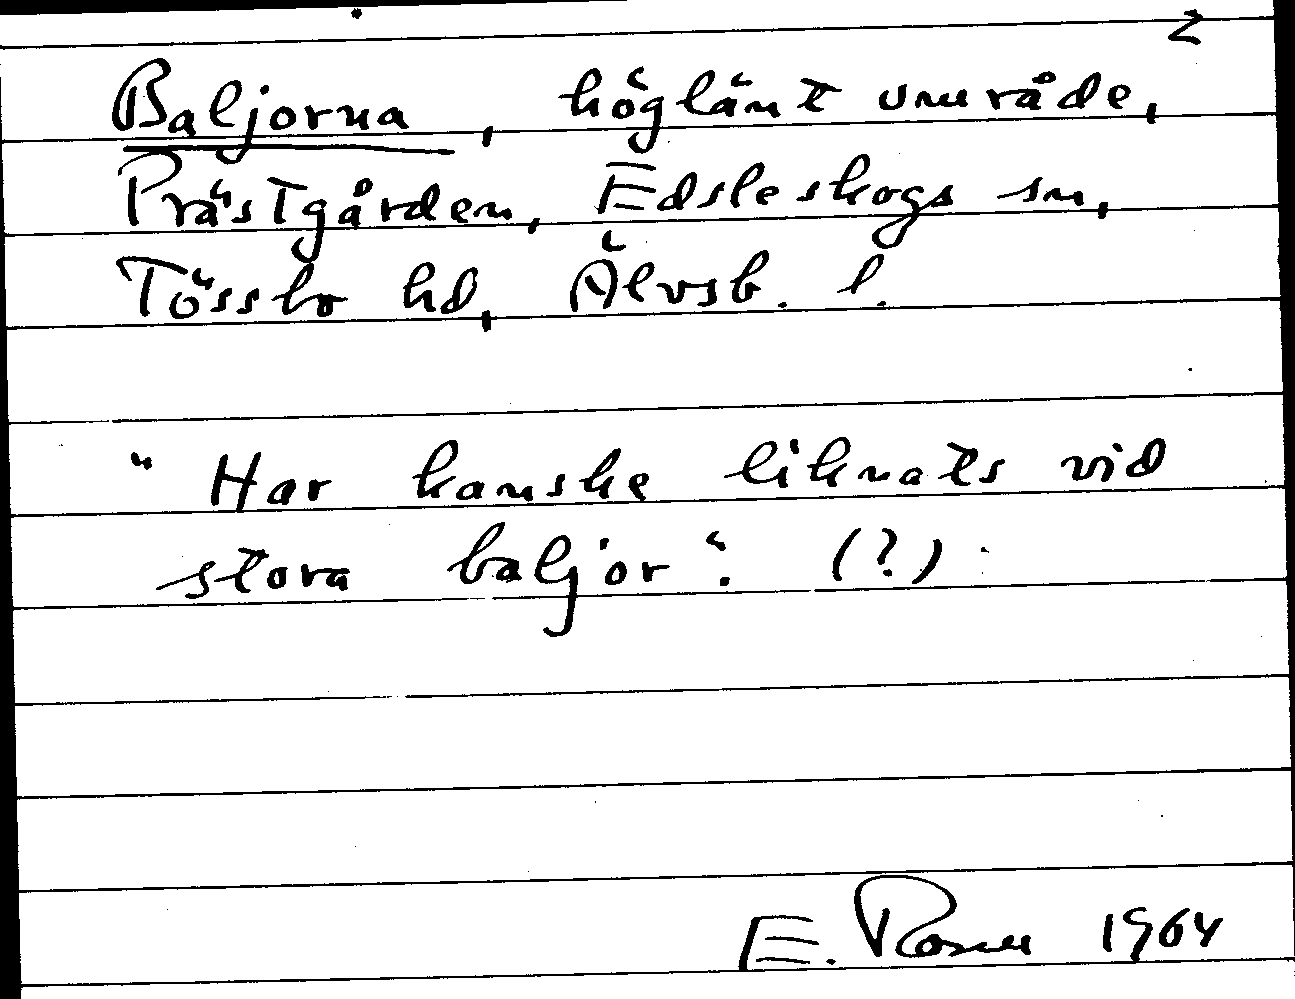 2
Baljorna, höglänt område,
Prästgården, Edsleskogs sn,
Tössbo hd, Älvsb. l.
"Har kanske liknats vid
stora baljor". (?)
E. Rosén 1964